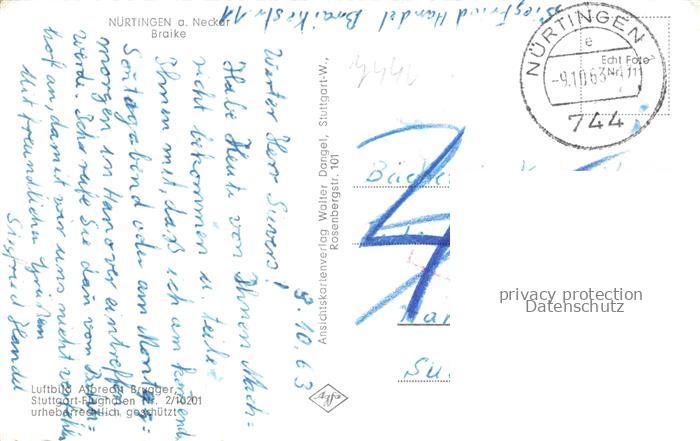 NÜRTINGEN a. Neckar
Braike
Siegfried Handel Braikestr 11
NÜRTINGEN
e
-9.10.63-
744
Echt Foto
Nr. 111
8.10.63
Werter Herr Sievers!
Habe Heute von Ihnen Nach=
richt bekommen u. teile
Ihnen mit, daß ich am kommend
Sonntagabend oder am Montag=
morgen in Hanover eintreffen
werde. Ich rufe Sie dan vom Bahn=
hof an, damit wir uns nicht verfehlen
Mit freundlichen Grüßen
Siegfried Handel
Ansichtskartenverlag Walter Dangel, Stuttgart-W.,
Rosenbergstr. 101
Luftbild Albrecht Brugger,
Stuttgart-Flughafen Nr. 2/10201
urheberrechtlich geschützt
4
privacy protection
Datenschutz